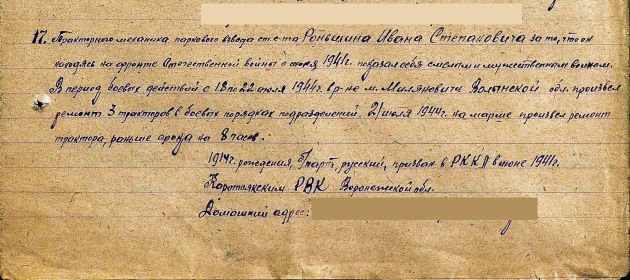 17. Тракторного механика паркового взвода ст. с-та Роньшина Ивана Степановича за то, что он
находясь на фронте Отечественной войны с июня 1941г. показал себя смелым и мужественным воином.
В период боевых действий с 18 по 22 июля 1944г. в р-не м. Миляновичи Волынской обл. произвел
ремонт 3 тракторов в боевых порядках подразделений. 21 июля 1944г. на марше произвел ремонт
трактора, раньше срока на 8 часов.
1914г. рождения, б/парт., русский, призван в РККА в июне 1941г.
Коротоякским РВК Воронежской обл.
Домашний адрес: